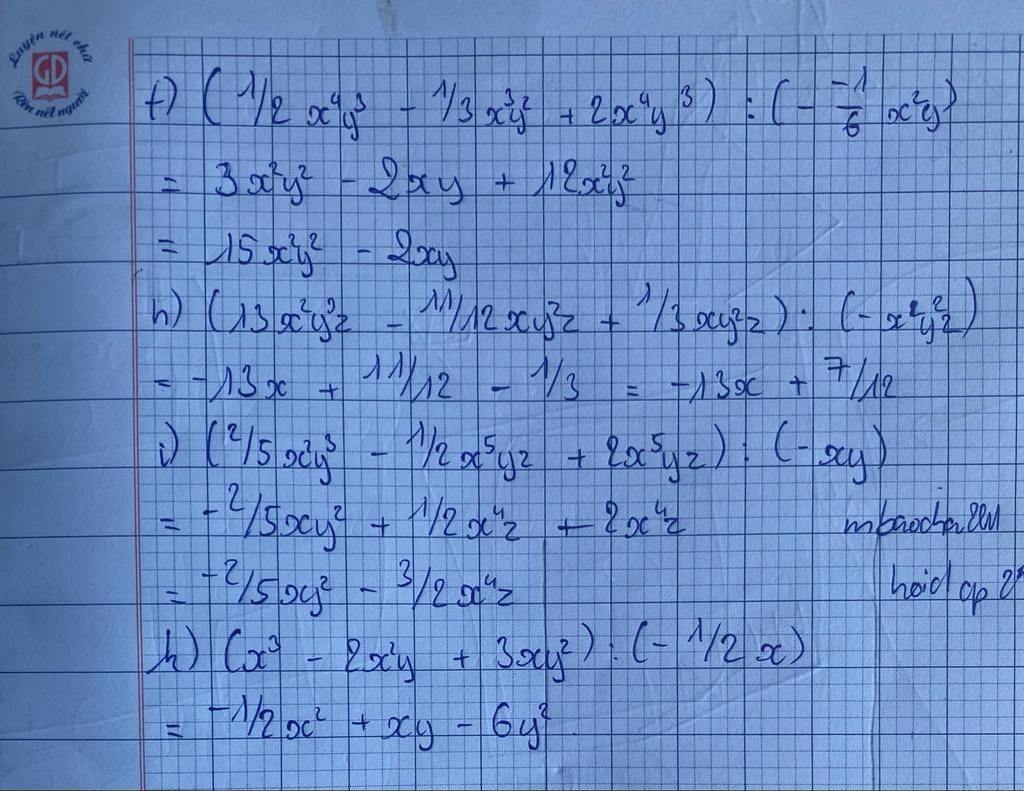 Luyện nét chữ
GD
Rèn nết người
f) (1/2 x⁴y³ - 1/3x³y² + 2x⁴y³) : (- -1/6 x²y)
= 3x²y² - 2xy + 12x²y²
= 15x²y² - 2xy
h) (13x²y²z - 11/12xy²z + 1/3xy²z) : (- x²y²z)
= -13x + 11/12 - 1/3 = -13x + 7/12
i) (2/5x²y³ - 1/2x⁵yz + 2x⁵yz) : (- xy)
= -2/5xy² + 1/2x⁴z - 2x⁴z
= -2/5xy² - 3/2x⁴z
h) (x³ - 2x²y + 3xy²) : (- 1/2 x)
= -1/2x² + xy - 6y²
hoid ap